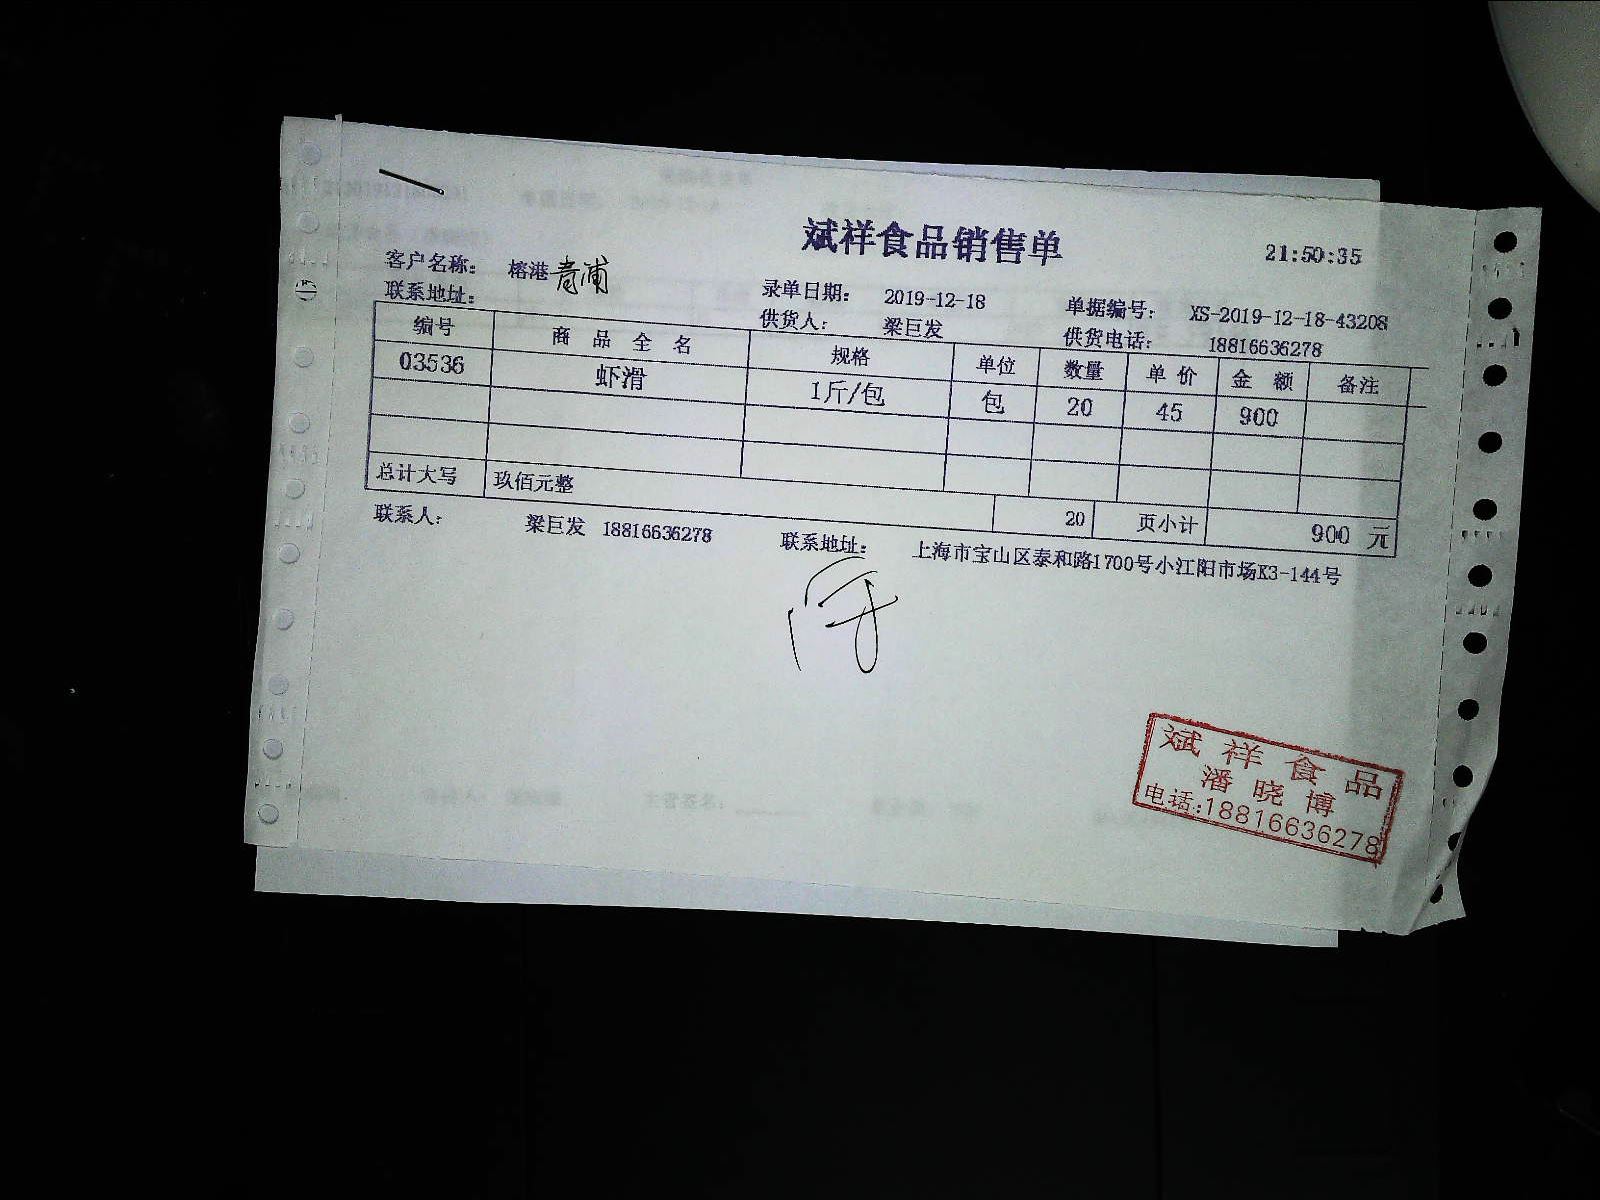 斌祥食品销售单
21:50:35
客户名称： 榕港青浦
录单日期： 2019-12-18 单据编号： XS-2019-12-18-43208
联系地址： 供货人： 梁巨发 供货电话： 18816636278
编号 商品全名 规格 单位 数量 单价 金额 备注
03536 虾滑 1斤/包 包 20 45 900
总计大写 玖佰元整 20 页小计 900 元
联系人： 梁巨发 18816636278 联系地址： 上海市宝山区泰和路1700号小江阳市场K3-144号
斌祥食品
潘晓博
电话:18816636278